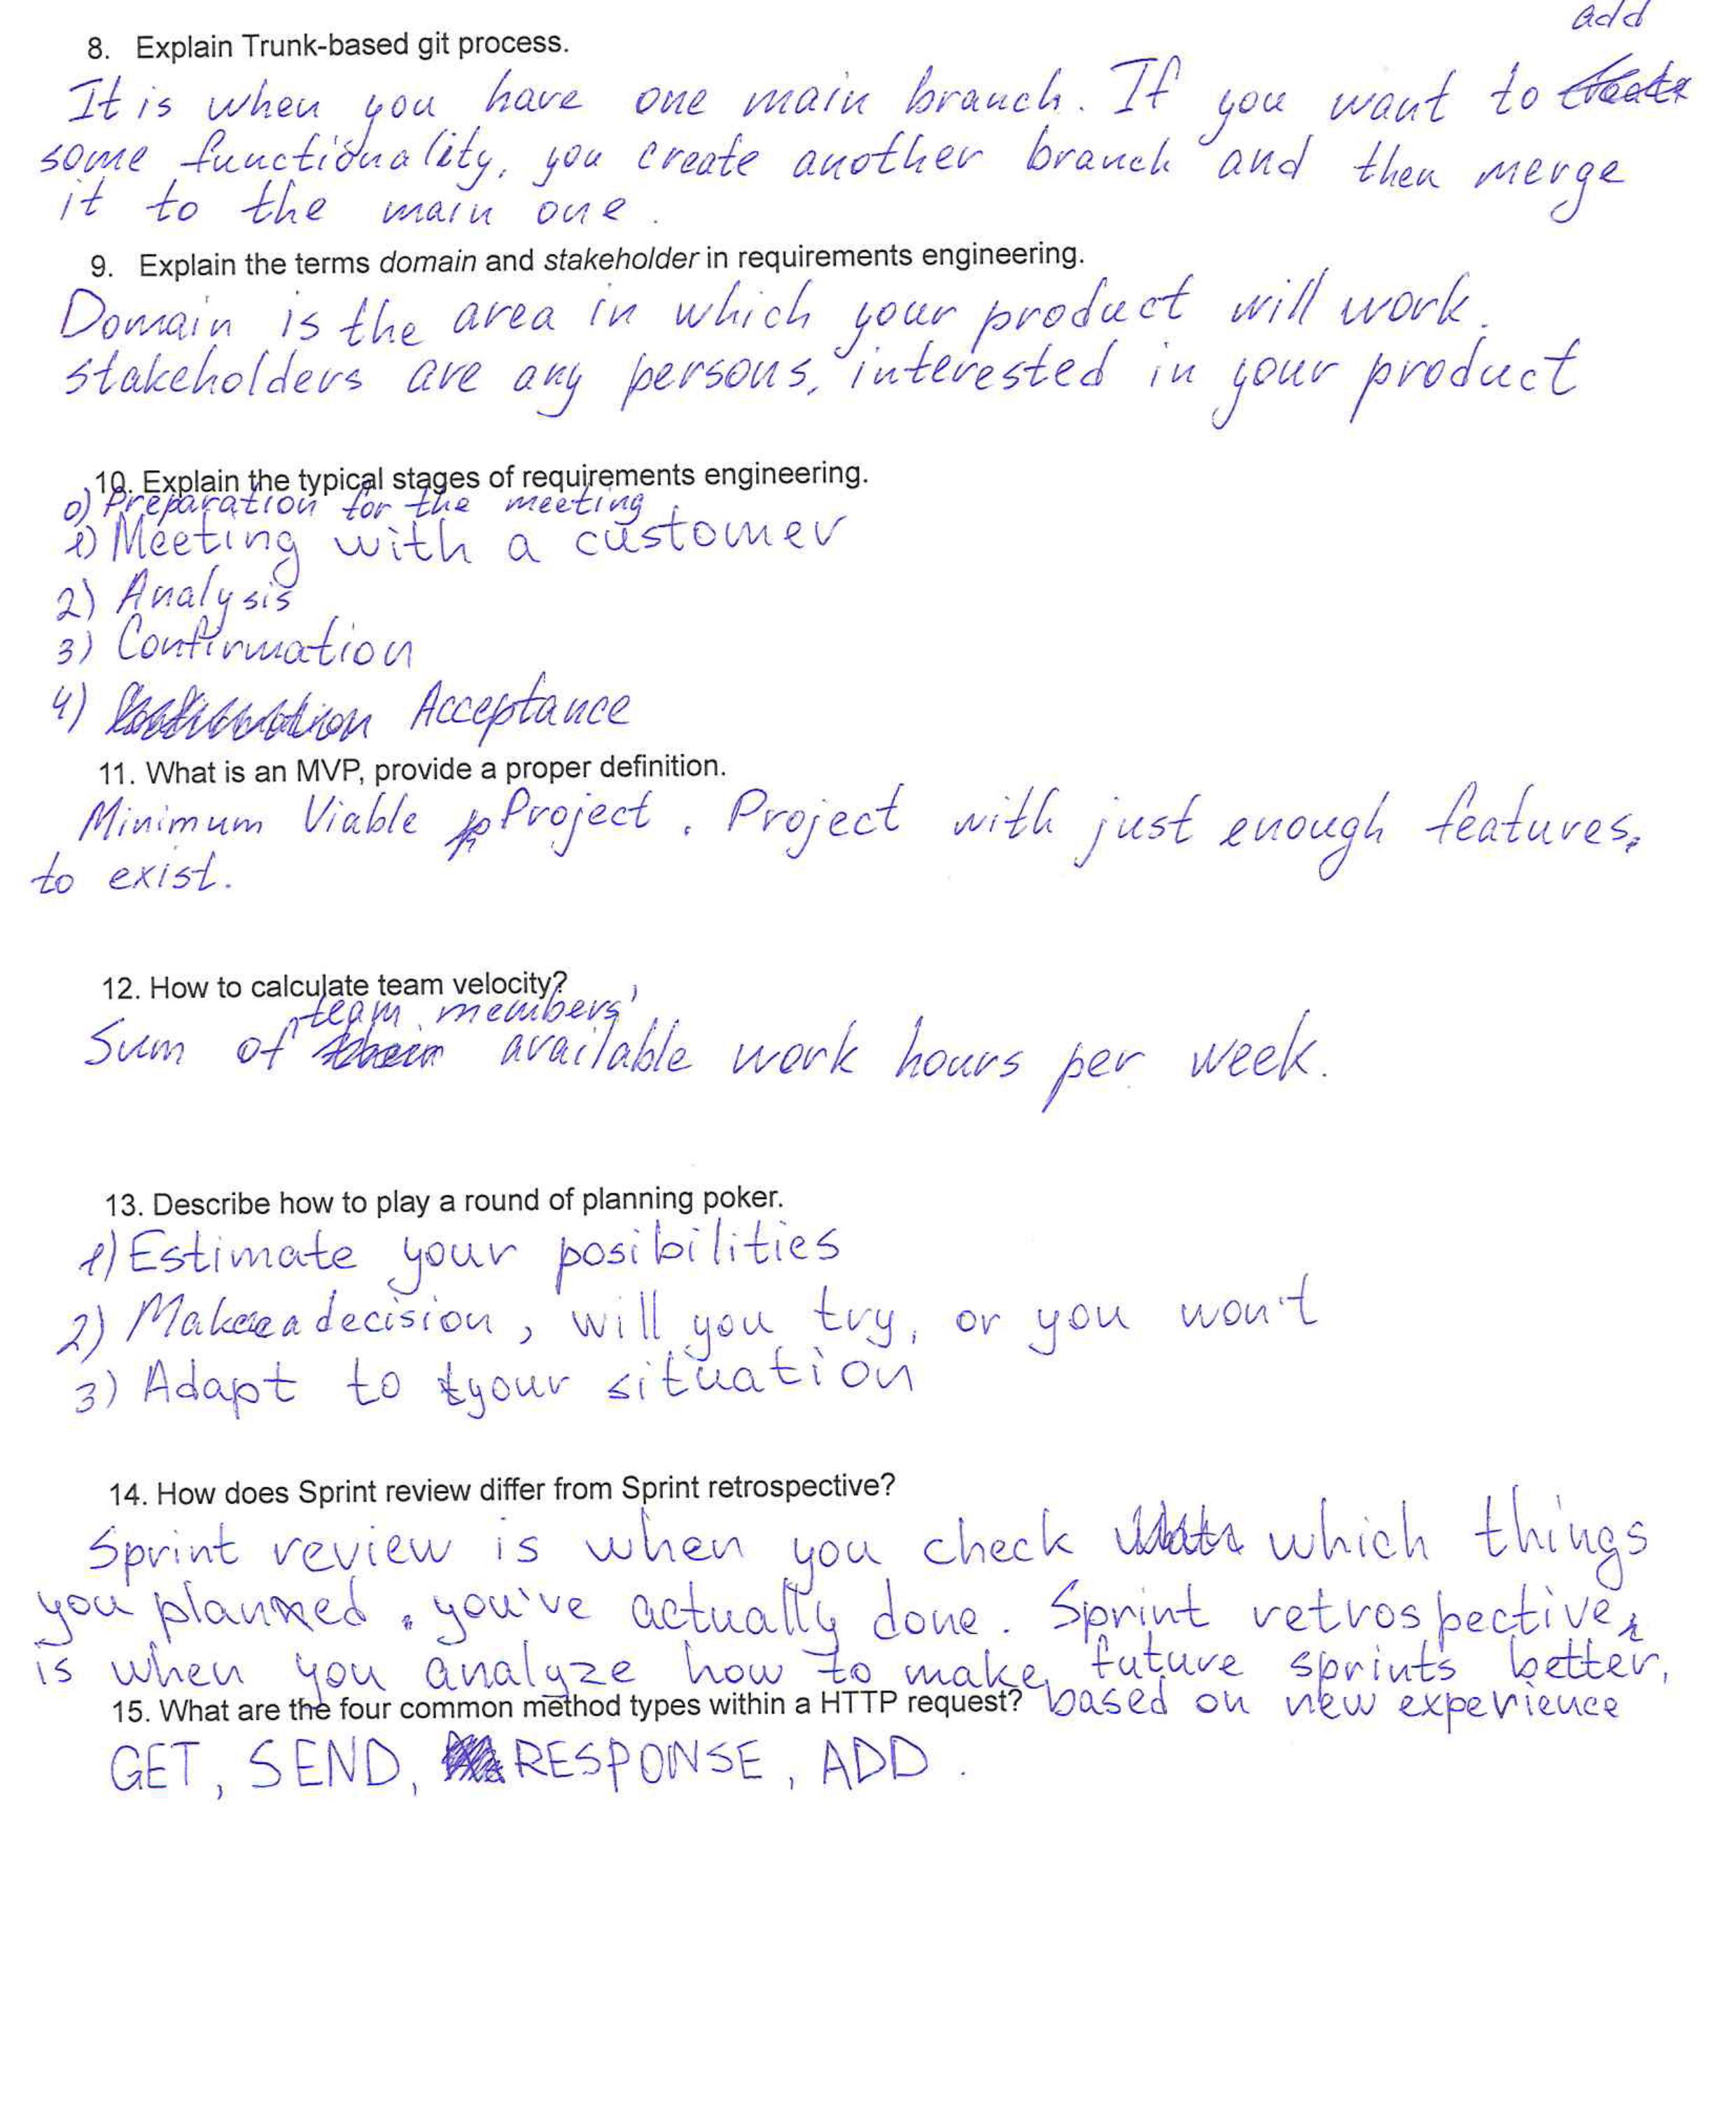 add
8. Explain Trunk-based git process.
It is when you have one main branch. If you want to
some functionality, you create another branch and then merge
it to the main one.
9. Explain the terms domain and stakeholder in requirements engineering.
Domain is the area in which your product will work.
stakeholders are any persons, interested in your product
10. Explain the typical stages of requirements engineering.
0) Preparation for the meeting
1) Meeting with a customer
2) Analysis
3) Confirmation
4) Acceptance
11. What is an MVP, provide a proper definition.
Minimum Viable Project. Project with just enough features,
to exist.
12. How to calculate team velocity?
team members'
Sum of their available work hours per week.
13. Describe how to play a round of planning poker.
1) Estimate your posibilities
2) Make a decision, will you try, or you won't
3) Adapt to your situation
14. How does Sprint review differ from Sprint retrospective?
Sprint review is when you check which things
you planned, you've actually done. Sprint retrospective
is when you analyze how to make future sprints better,
15. What are the four common method types within a HTTP request? based on new experience
GET, SEND, RESPONSE, ADD.